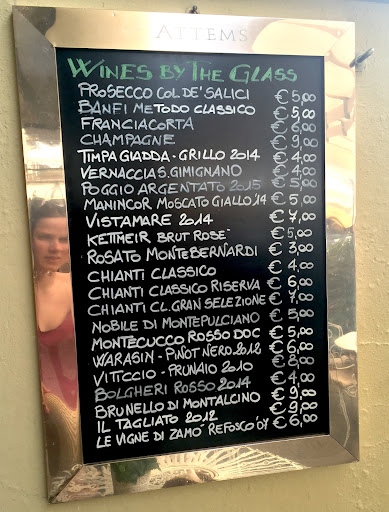 ATTEMS
WINES BY THE GLASS
PROSECCO COL DE' SALICI € 5,00
BANFI METODO CLASSICO € 5,00
FRANCIACORTA € 6,00
CHAMPAGNE € 9,00
TIMPA GIADDA - GRILLO 2014 € 4,00
VERNACCIA S. GIMIGNANO € 4,00
POGGIO ARGENTATO 2015 € 5,00
MANINCOR MOSCATO GIALLO '14 € 5,00
VISTAMARE 2014 € 7,00
KETTMEIR BRUT ROSÉ € 5,00
ROSATO MONTEBERNARDI € 3,00
CHIANTI CLASSICO € 4,00
CHIANTI CLASSICO RISERVA € 6,00
CHIANTI CL. GRAN SELEZIONE € 7,00
NOBILE DI MONTEPULCIANO € 5,00
MONTECUCCO ROSSO DOC € 5,00
WARASIN - PINOT NERO 2012 € 6,00
VITICCIO - PRUNAIO 2010 € 8,00
BOLGHERI ROSSO 2014 € 4,00
BRUNELLO DI MONTALCINO € 9,00
IL TAGLIATO 2012 € 9,00
LE VIGNE DI ZAMÒ REFOSCO € 6,00